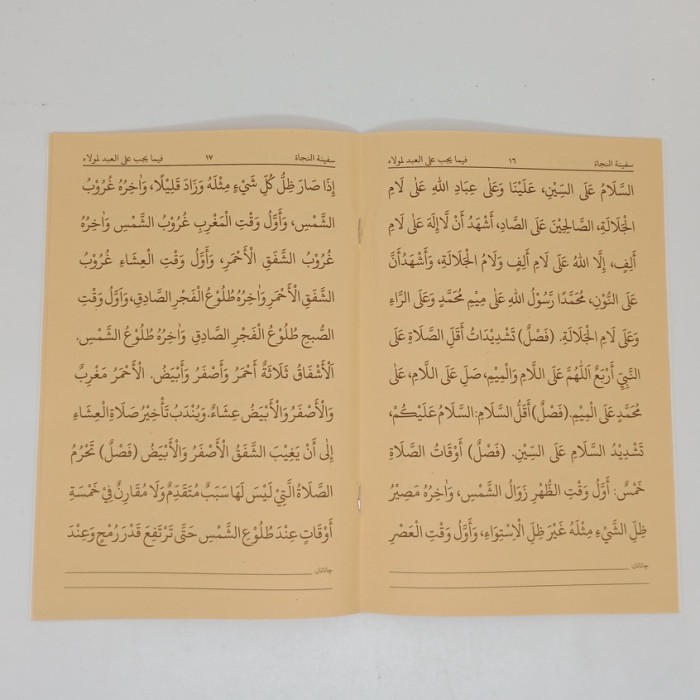 سفينة النجاة ١٦ فيما يجب على العبد لمولاه
السَّلَامُ عَلَى السِّيْنِ، عَلَيْنَا وَعَلَى عِبَادِ اللهِ عَلَى لَامِ
الْجَلَالَةِ، الصَّالِحِيْنَ عَلَى الصَّادِ، أَشْهَدُ أَنْ لَّا إِلَهَ عَلَى لَامِ
أَلِفٍ، إِلَّا اللهُ عَلَى لَامِ أَلِفٍ وَلَامُ الْجَلَالَةِ، وَأَشْهَدُ أَنَّ
عَلَى النُّوْنِ، مُحَمَّدًا رَّسُوْلُ اللهِ عَلَى مِيْمِ مُحَمَّدٍ وَعَلَى الرَّاءِ
وَعَلَى لَامِ الْجَلَالَةِ. (فَصْلٌ) تَشْدِيْدَاتُ أَقَلِّ الصَّلَاةِ عَلَى
النَّبِيِّ أَرْبَعٌ اَللّٰهُمَّ عَلَى اللَّامِ وَالْمِيْمِ، صَلِّ عَلَى اللَّامِ، عَلٰى
مُحَمَّدٍ عَلَى الْمِيْمِ. (فَصْلٌ) أَقَلُّ السَّلَامِ: اَلسَّلَامُ عَلَيْكُمْ،
تَشْدِيْدُ السَّلَامِ عَلَى السِّيْنِ. (فَصْلٌ) أَوْقَاتُ الصَّلَاةِ
خَمْسٌ: أَوَّلُ وَقْتِ الظُّهْرِ زَوَالُ الشَّمْسِ، وَاٰخِرُهُ مَصِيْرُ
ظِلِّ الشَّيْءِ مِثْلَهُ غَيْرَ ظِلِّ الْاِسْتِوَاءِ، وَأَوَّلُ وَقْتِ الْعَصْرِ
سفينة النجاة ١٧ فيما يجب على العبد لمولاه
إِذَا صَارَ ظِلُّ كُلِّ شَيْءٍ مِثْلَهُ وَزَادَ قَلِيْلًا، وَاٰخِرُهُ غُرُوْبُ
الشَّمْسِ، وَأَوَّلُ وَقْتِ الْمَغْرِبِ غُرُوْبُ الشَّمْسِ وَاٰخِرُهُ
غُرُوْبُ الشَّفَقِ الْأَحْمَرِ، وَأَوَّلُ وَقْتِ الْعِشَاءِ غُرُوْبُ
الشَّفَقِ الْأَحْمَرِ وَاٰخِرُهُ طُلُوْعُ الْفَجْرِ الصَّادِقِ، وَأَوَّلُ وَقْتِ
الصُّبحِ طُلُوْعُ الْفَجْرِ الصَّادِقِ وَاٰخِرُهُ طُلُوْعُ الشَّمْسِ.
اَلْأَشْفَاقُ ثَلَاثَةٌ أَحْمَرُ وَأَصْفَرُ وَأَبْيَضُ. الْأَحْمَرُ مَغْرِبٌ
وَالْأَصْفَرُ وَالْأَبْيَضُ عِشَاءٌ. وَيُنْدَبُ تَأْخِيْرُ صَلَاةِ الْعِشَاءِ
إِلٰى أَنْ يَغِيْبَ الشَّفَقُ الْأَصْفَرُ وَالْأَبْيَضُ (فَصْلٌ) تَحْرُمُ
الصَّلَاةُ الَّتِيْ لَيْسَ لَهَا سَبَبٌ مُتَقَدِّمٌ وَلَا مُقَارِنٌ فِيْ خَمْسَةِ
أَوْقَاتٍ عِنْدَ طُلُوْعِ الشَّمْسِ حَتَّى تَرْتَفِعَ قَدْرَ رُمْحٍ وَعِنْدَ